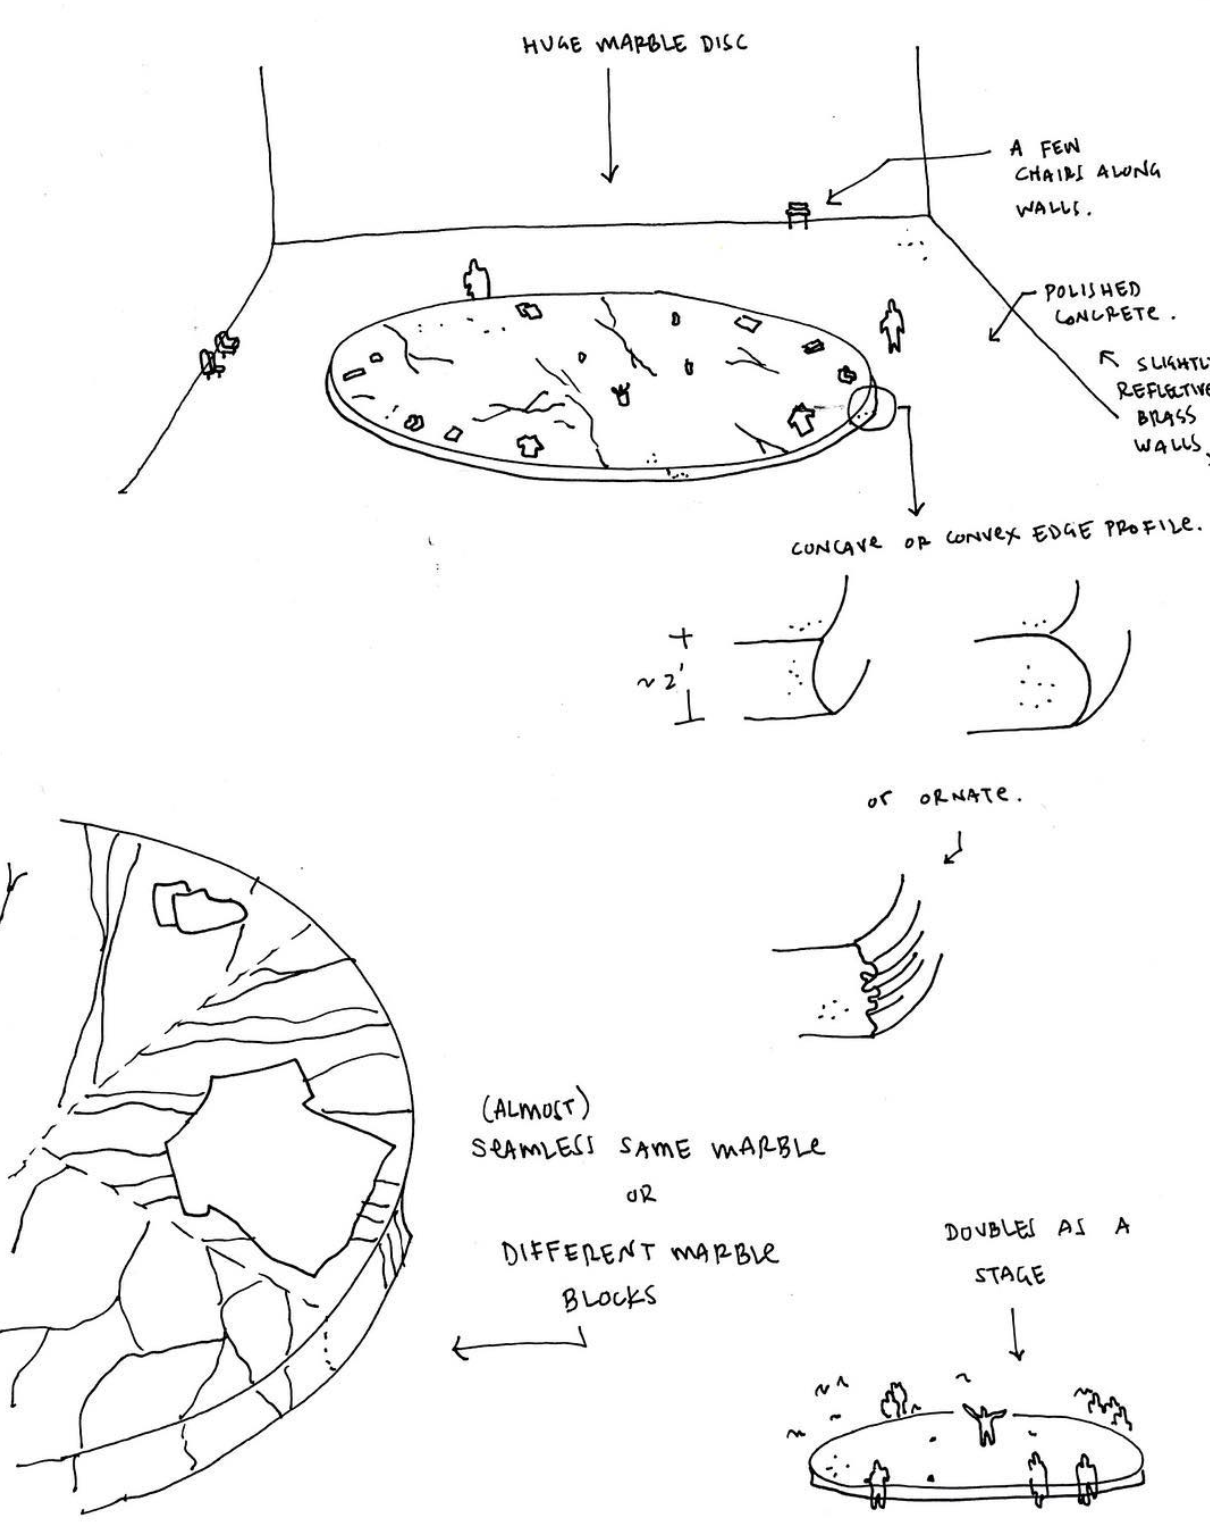 HUGE MARBLE DISC
A FEW
CHAIRS ALONG
WALLS.
POLISHED
CONCRETE.
SLIGHTLY
REFLECTIVE
BRASS
WALLS.
CONCAVE OR CONVEX EDGE PROFILE.
~2'
or ORNATE.
(ALMOST)
SEAMLESS SAME MARBLE
OR
DIFFERENT MARBLE
BLOCKS
DOUBLES AS A
STAGE